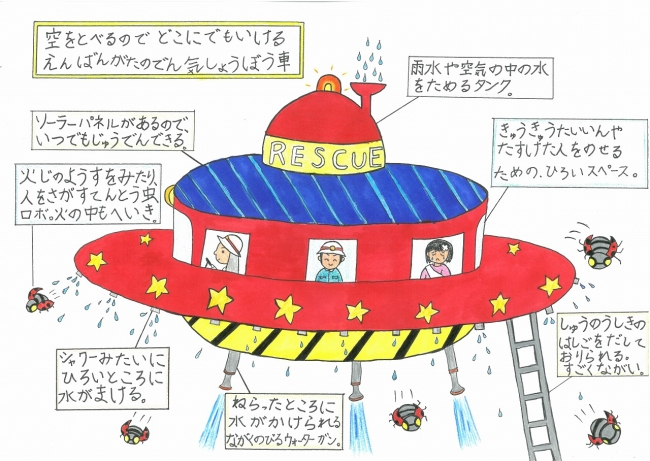 空をとべるので どこにでもいける
えんばんがたのでん気しょうぼう車
雨水や空気の中の水
をためるタンク。
ソーラーパネルがあるので
いつでもじゅうでんできる。
きゅうきゅうたいいんや
たすけた人をのせる
ための、ひろいスペース。
RESCUE
火じのようすをみたり、
人をさがすてんとう虫
ロボ。火の中もへいき。
しゅうのうしきの
はしごをだして
おりられる。
すごくながい。
シャワーみたいに
ひろいところに
水がまける。
ねらったところに
水がかけられる
ながくのびるウォーターガン。